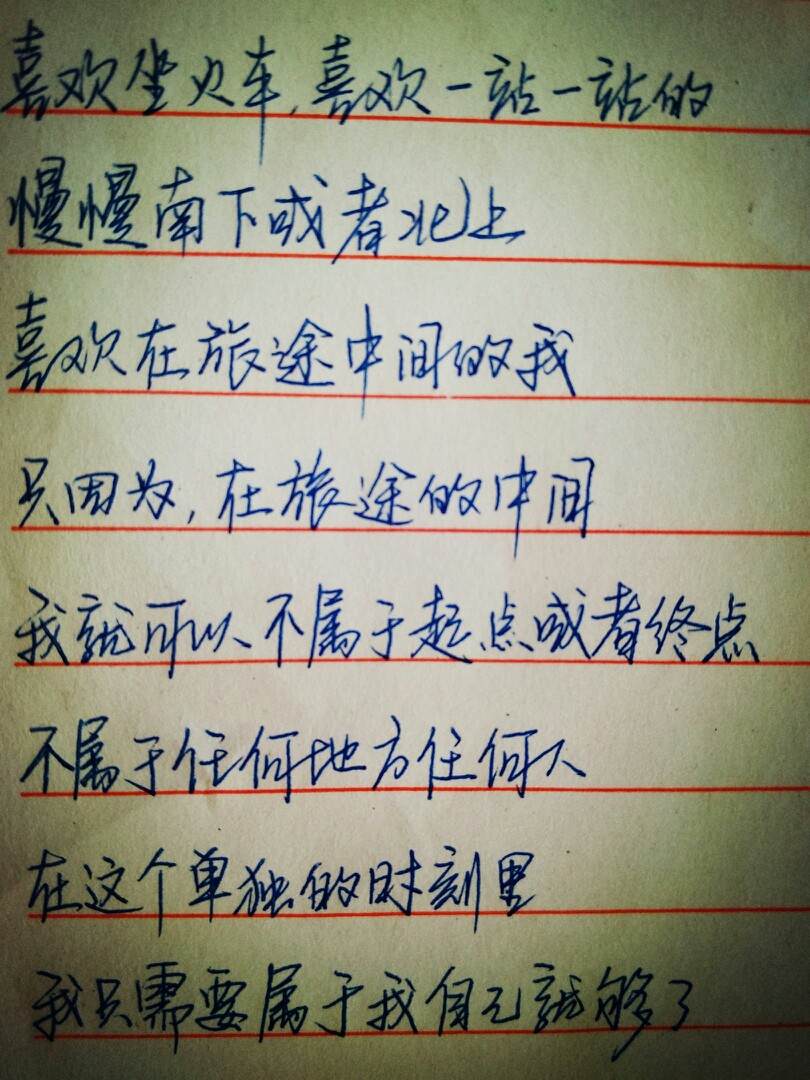 喜欢坐火车,喜欢一站一站的
慢慢南下或者北上
喜欢在旅途中间的我
只因为,在旅途的中间
我就可以不属于起点或者终点
不属于任何地方任何人
在这个单独的时刻里
我只需要属于我自己就够了